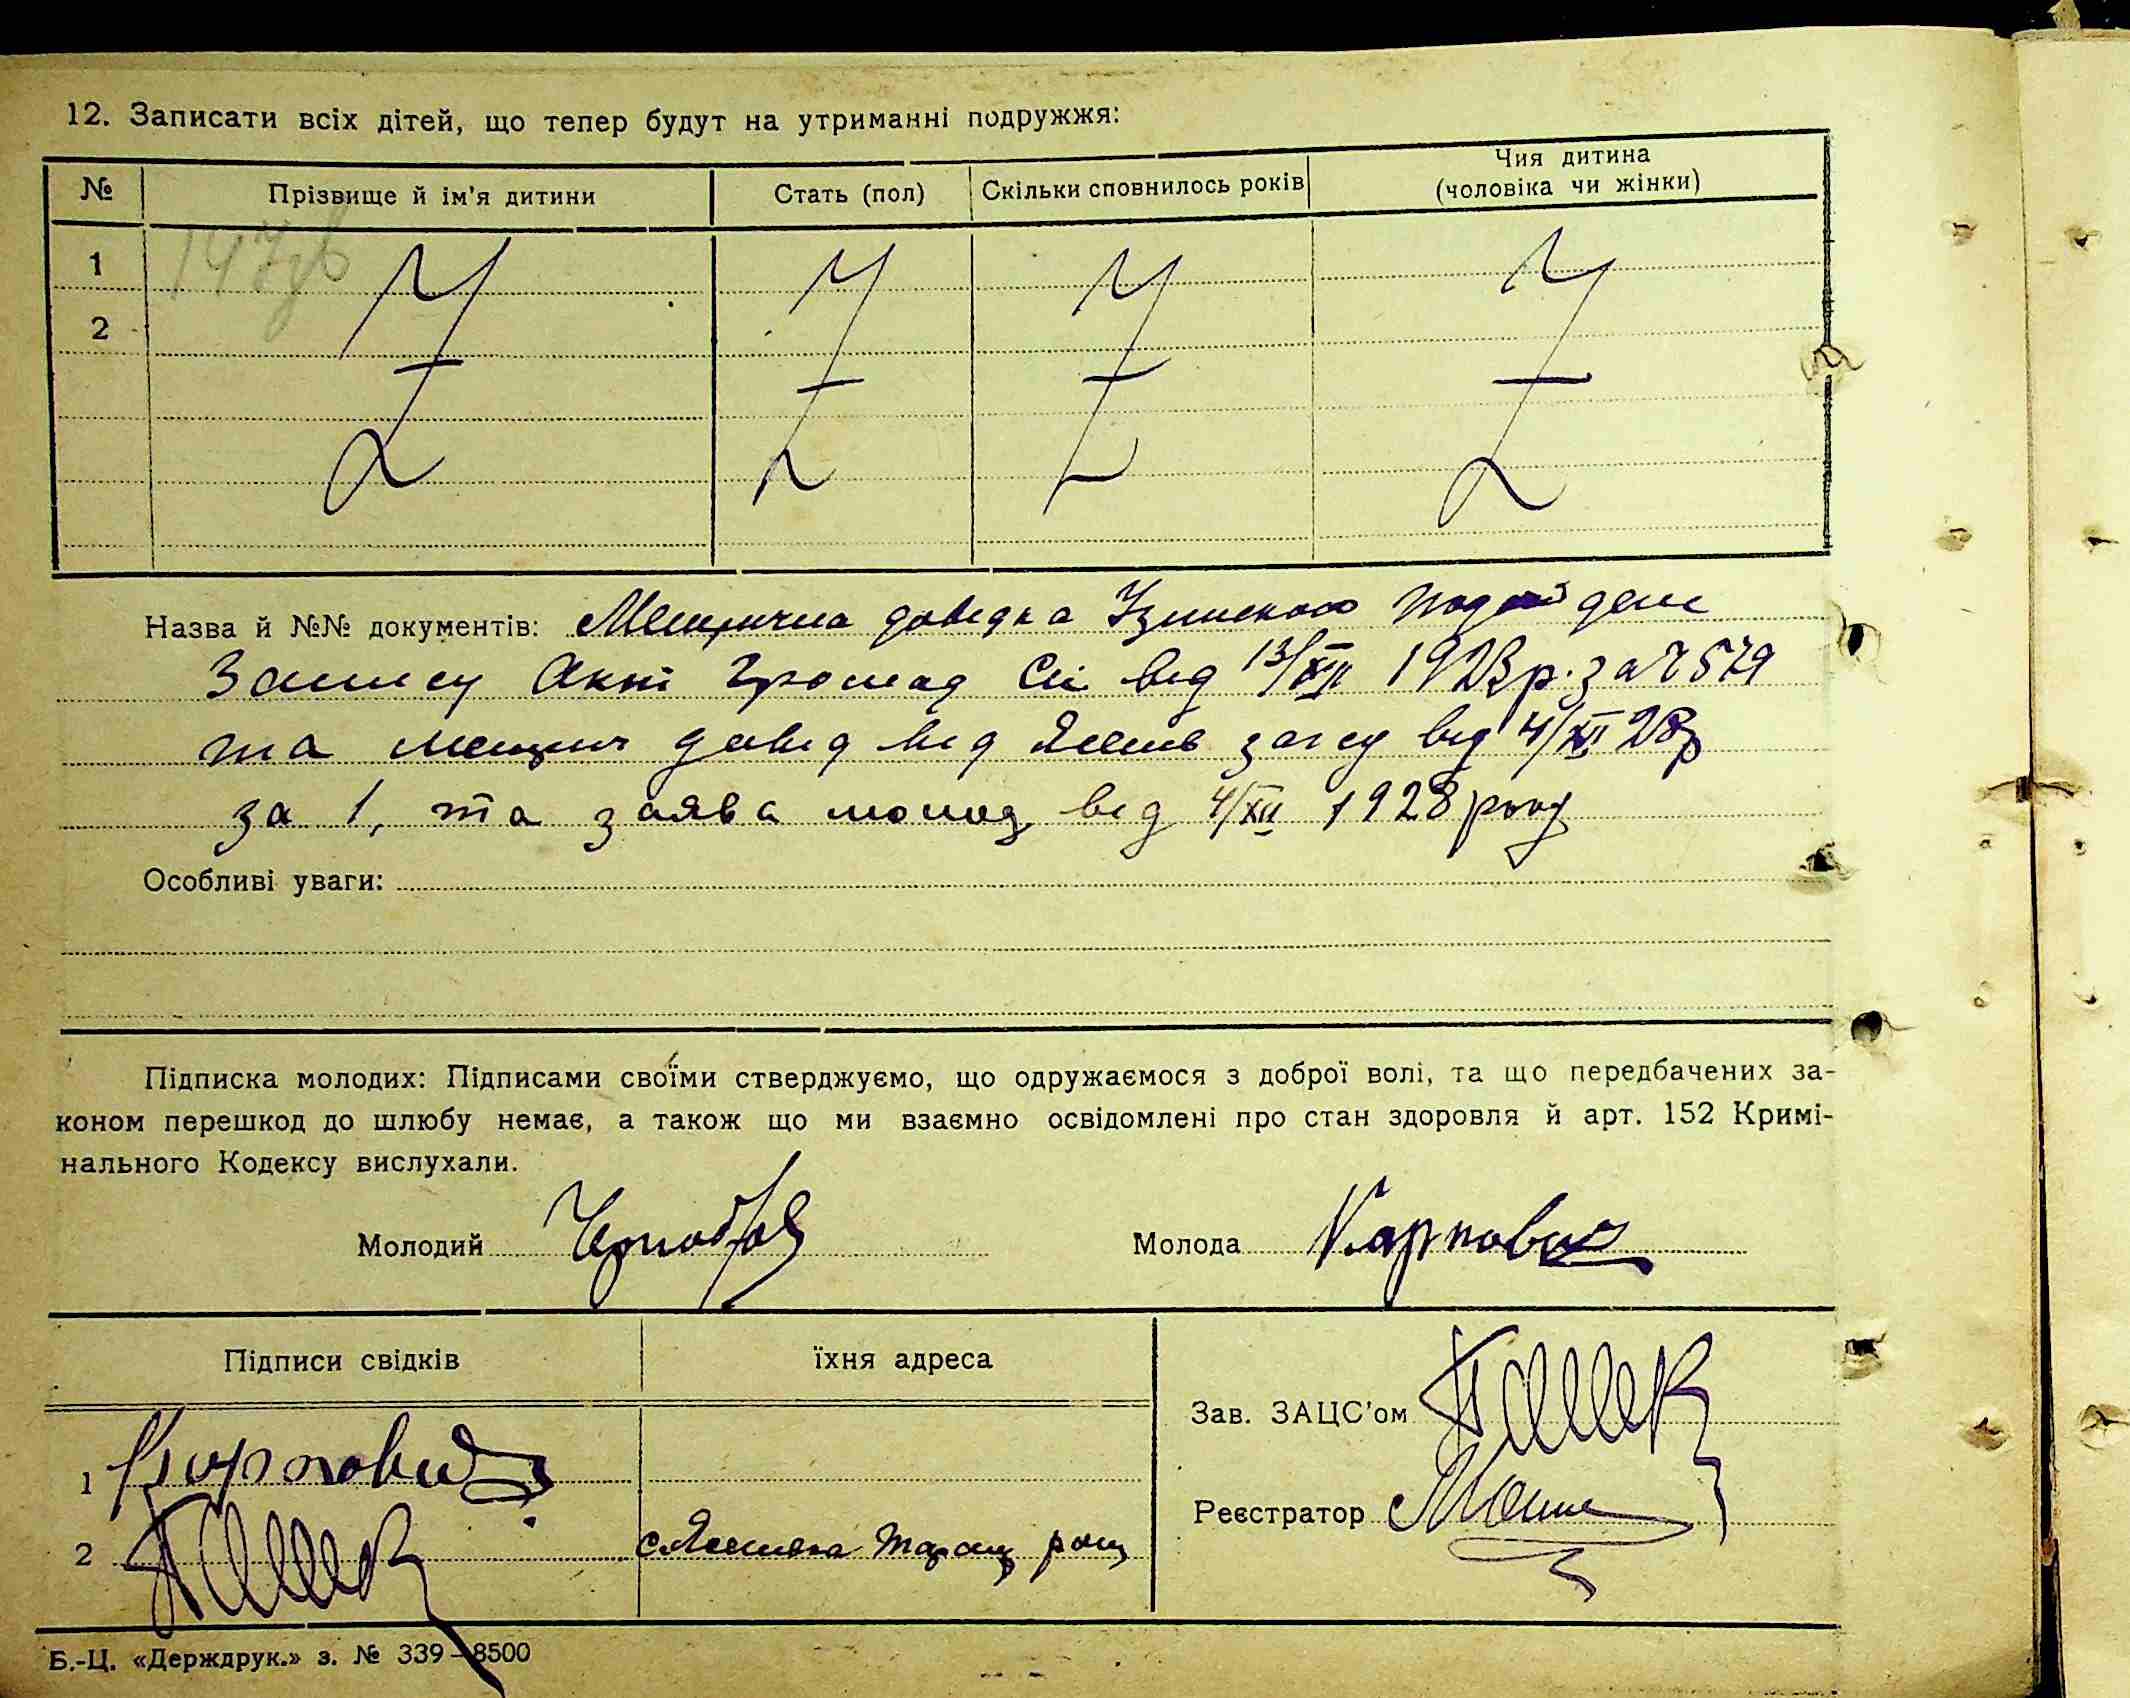 12. Записати всіх дітей, що тепер будут на утриманні подружжя:
№ Прізвище й ім'я дитини Стать (пол) Скільки сповнилось років Чия дитина (чоловіка чи жінки)
1
2
Назва й №№ документів: Метрична довідка
Запису Акт Громад Ст від 13/XII 1923 р. за № 579
та метрич довід від загсу від 4/XII 28 р
за 1, та заява молод від 4/XII 1928 року
Особливі уваги:
Підписка молодих: Підписами своїми стверджуємо, що одружаємося з доброї волі, та що передбачених за-
коном перешкод до шлюбу немає, а також що ми взаємно освідомлені про стан здоровля й арт. 152 Кримі-
нального Кодексу вислухали.
Молодий Молода Карпович
Підписи свідків їхня адреса
Зав. ЗАЦС'ом
1 Карпович
Реєстратор
2 Таращ
Б.-Ц. «Держдрук.» з. № 339–8500